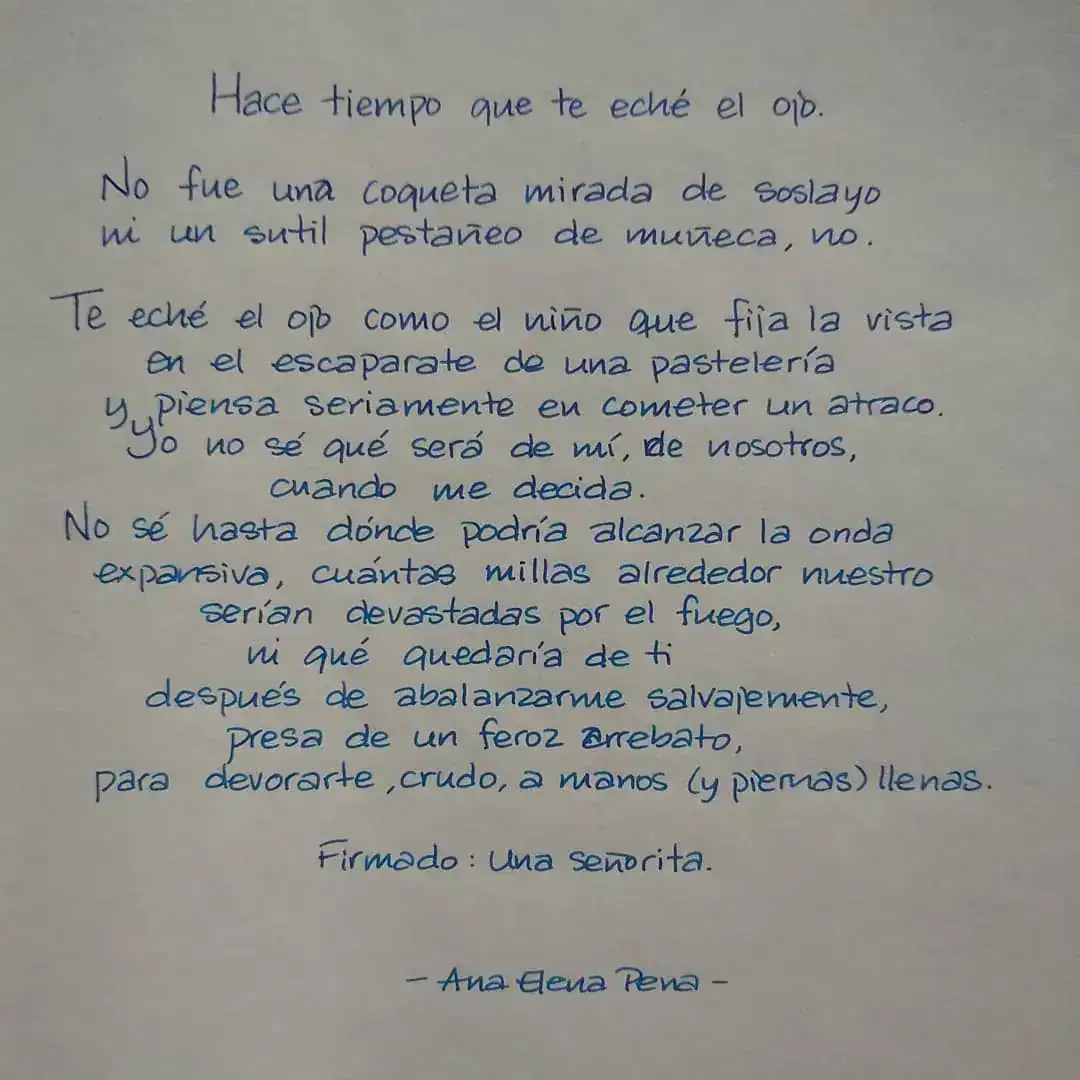 Hace tiempo que te eché el ojo.
No fue una coqueta mirada de soslayo
ni un sutil pestañeo de muñeca, no.
Te eché el ojo como el niño que fija la vista
en el escaparate de una pastelería
y piensa seriamente en cometer un atraco.
Yo no sé qué será de mí, de nosotros,
cuando me decida.
No sé hasta dónde podría alcanzar la onda
expansiva, cuántas millas alrededor nuestro
serían devastadas por el fuego,
ni qué quedaría de ti
después de abalanzarme salvajemente,
presa de un feroz arrebato,
para devorarte, crudo, a manos (y piernas) llenas.
Firmado: Una señorita.
- Ana Elena Pena -